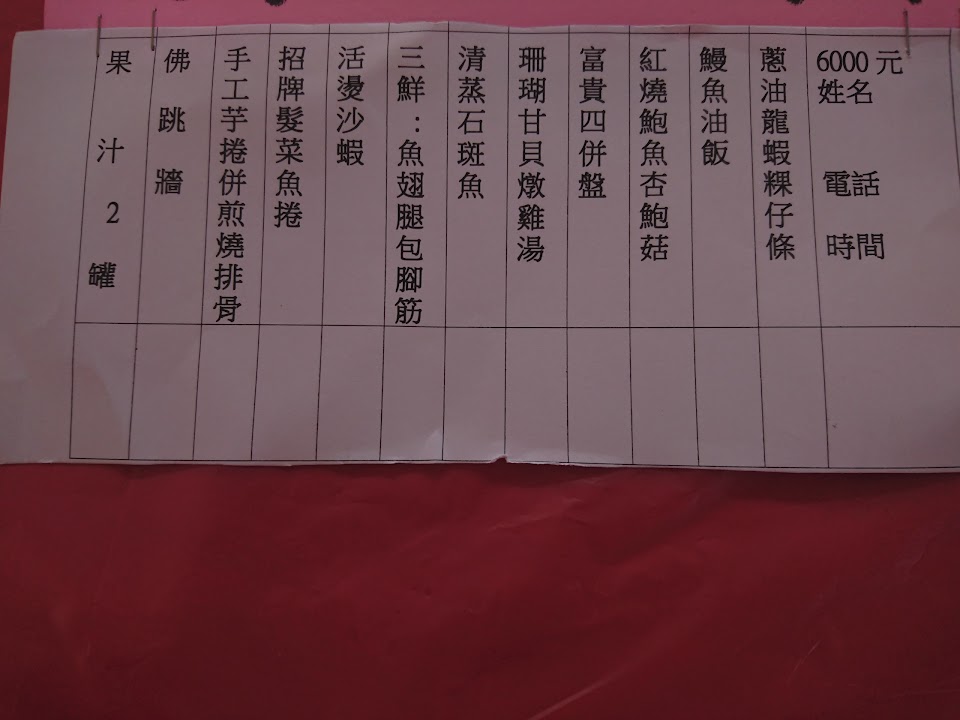 6000 元
姓名
電話
時間
蔥油龍蝦粿仔條
鰻魚油飯
紅燒鮑魚杏鮑菇
富貴四併盤
珊瑚甘貝燉雞湯
清蒸石斑魚
三鮮：魚翅腿包腳筋
活燙沙蝦
招牌髮菜魚捲
手工芋捲併煎燒排骨
佛跳牆
果汁2罐